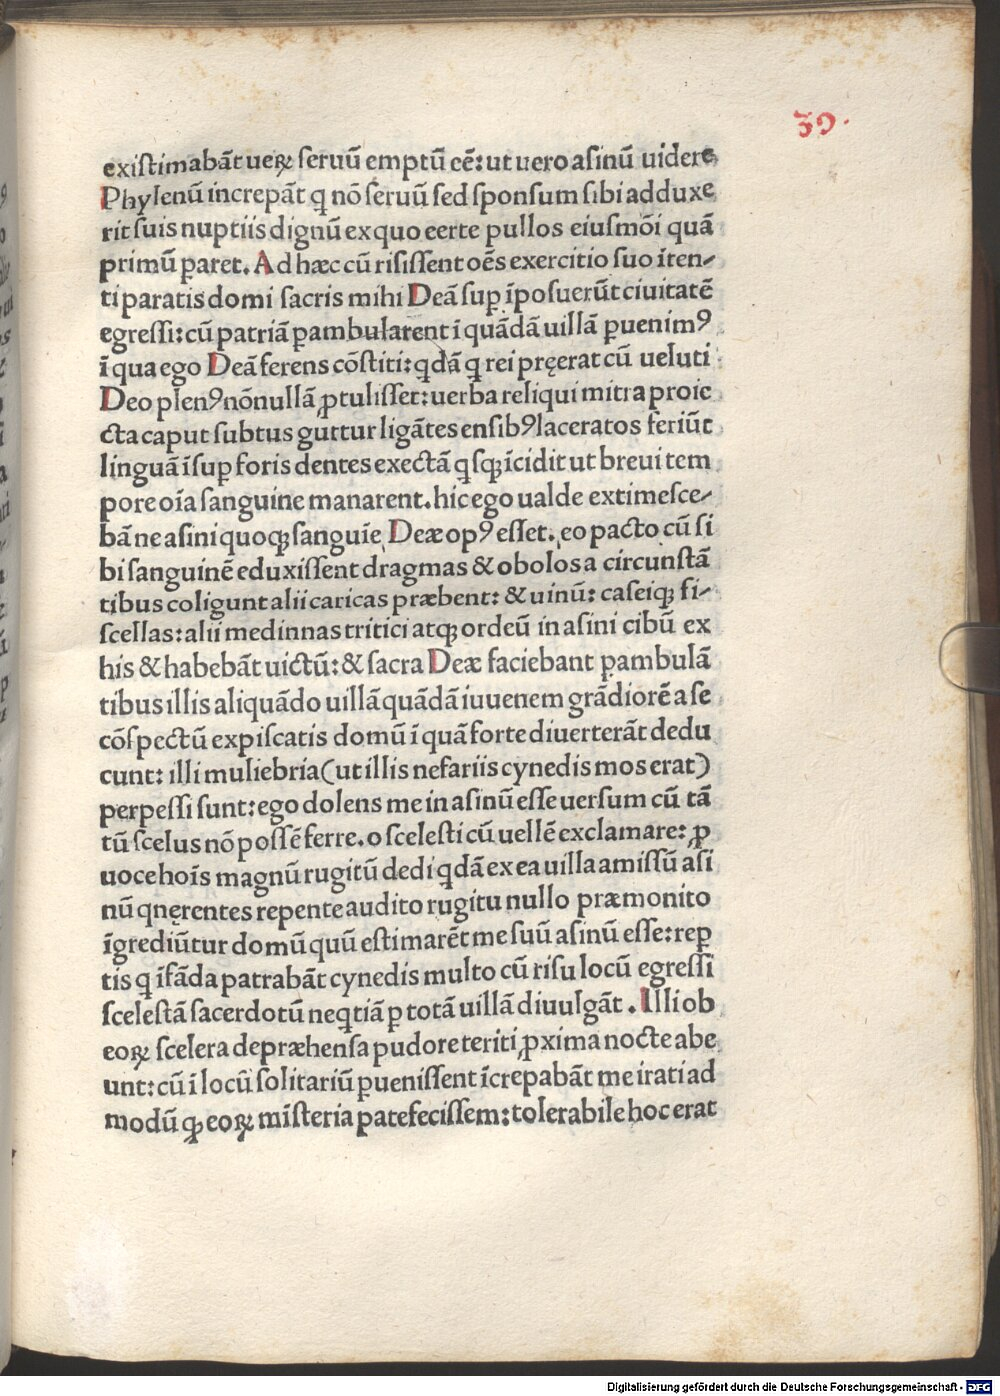 39.
existimabāt ueꝝ seruū emptū eē: ut uero asinū uidere
Phylenū increpāt q nō seruū sed sponsum sibi adduxe
rit suis nuptiis dignū ex quo eerte pullos eiusmōi quā
primū ꝑaret. Ad hæc cū risissent oēs exercitio suo īten⸗
ti paratis domi sacris mihi Deā suꝑ īposuerūt ciuitatē
egressi: cū patriā ꝑambularent ī quādā uillā ꝑuenimꝰ
ī qua ego Deā ferens cōstiti: qdā q rei pręerat cū ueluti
Deo plenꝰ nōnullā ꝓtulisset: uerba reliqui mitra proie
cta caput subtus guttur ligātes ensibꝰ laceratos feriūt
linguā īsuꝑ foris dentes exectā qsqꝫ īcidit ut breui tem
pore oīa sanguine manarent. hic ego ualde extimesce⸗
bā ne asini quoqꝫ sanguīe Deæ opꝰ esset. eo pacto cū si
bi sanguinē eduxissent dragmas & obolos a circunstā
tibus coligunt alii caricas præbent: & uinū: caseiqꝫ fi⸗
scellas: alii medinnas tritici atqꝫ ordeū in asini cibū ex
his & habebāt uictū: & sacra Deæ faciebant ꝑambulā
tibus illis aliquādo uillā quādā iuuenem grādiorē a se
cōspectū expiscatis domū ī quā forte diuerterāt dedu
cunt: illi muliebria (ut illis nefariis cynedis mos erat)
perpessi sunt: ego dolens me in asinū esse uersum cū tā
tū scelus nō possē ferre. o scelesti cū uellē exclamare: ꝓ
uoce hoīs magnū rugitū dedi qdā ex ea uilla amissū asi
nū qnęrentes repente audito rugitu nullo præmonito
īgrediūtur domū quū estimarēt me suū asinū esse: reꝑ
tis q īfāda patrabāt cynedis multo cū risu locū egressi
scelestā sacerdotū neqtiā ꝑ totā uillā diuulgāt. Illi ob
eoꝝ scelera depræhensa pudore teriti ꝓxima nocte abe
unt: cū ī locū solitariū ꝑuenissent īcrepabāt me irati ad
modū qꝫ eoꝝ mīsteria patefecissem: tolerabile hoc erat
Digitalisierung gefördert durch die Deutsche Forschungsgemeinschaft - DFG